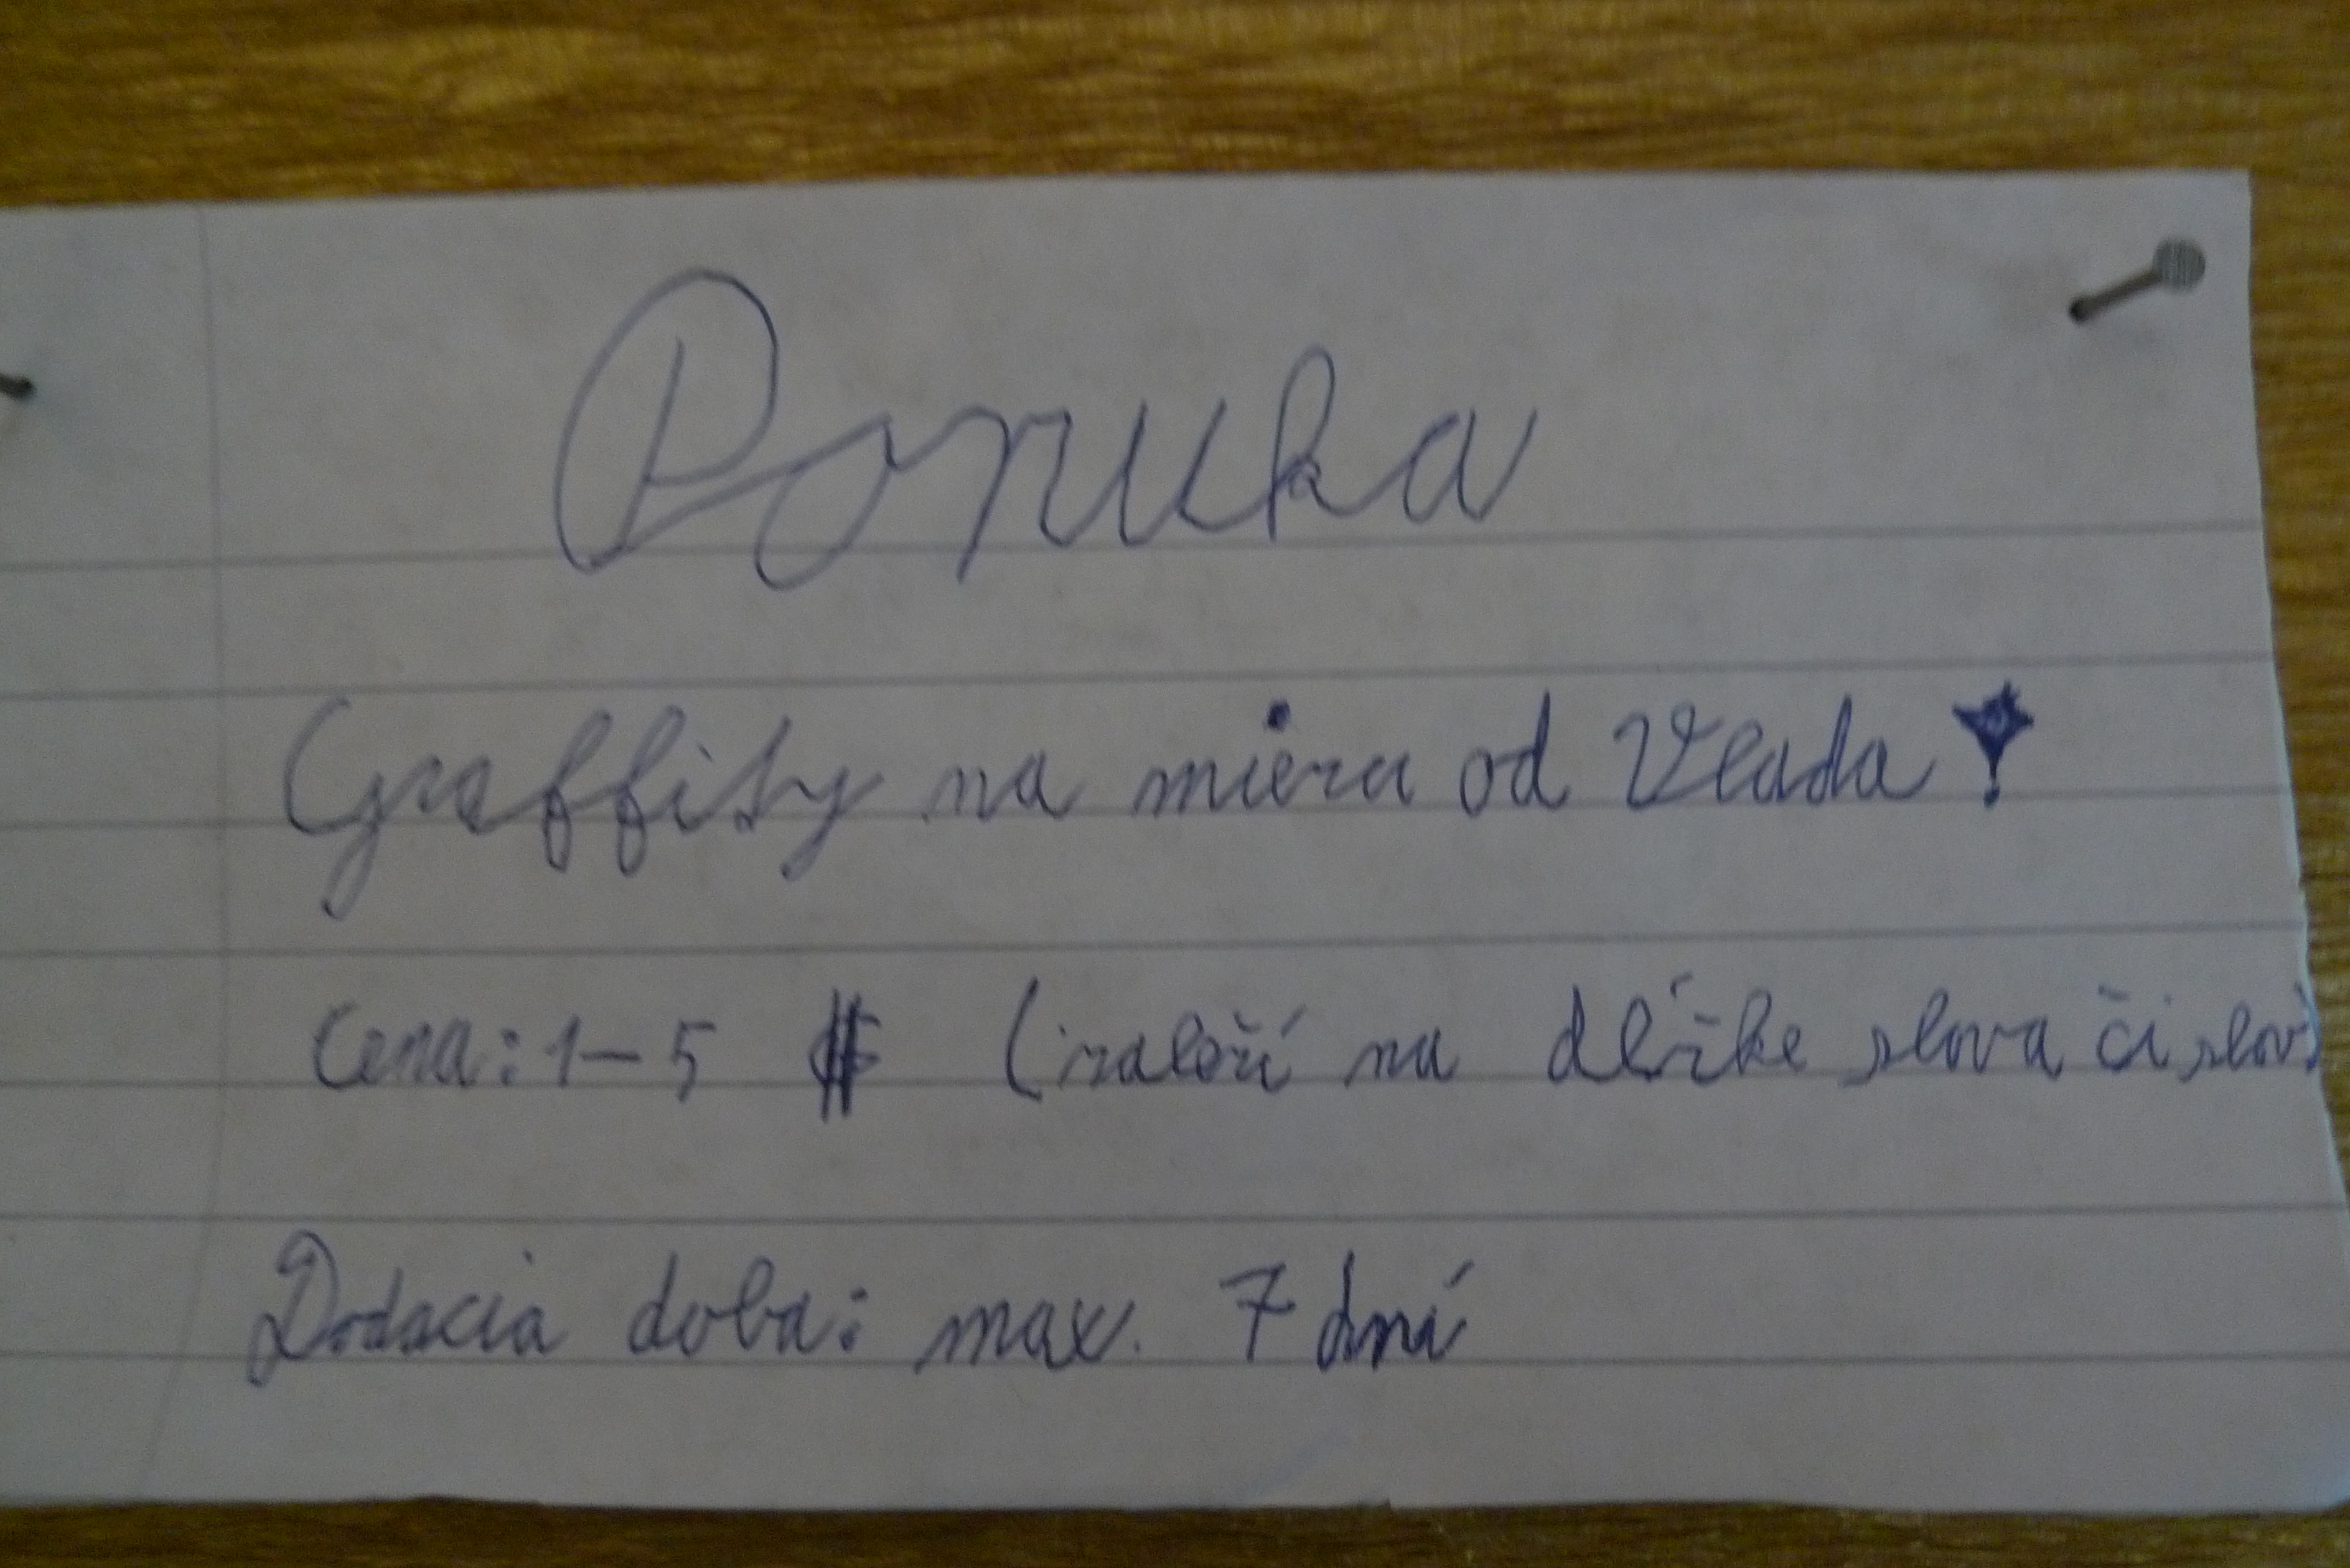 Ponuka
Graffity na mieru od Vlada!
Cena: 1-5 $ (záleží na dĺžke slova či slov)
Dodacia doba: max. 7 dní